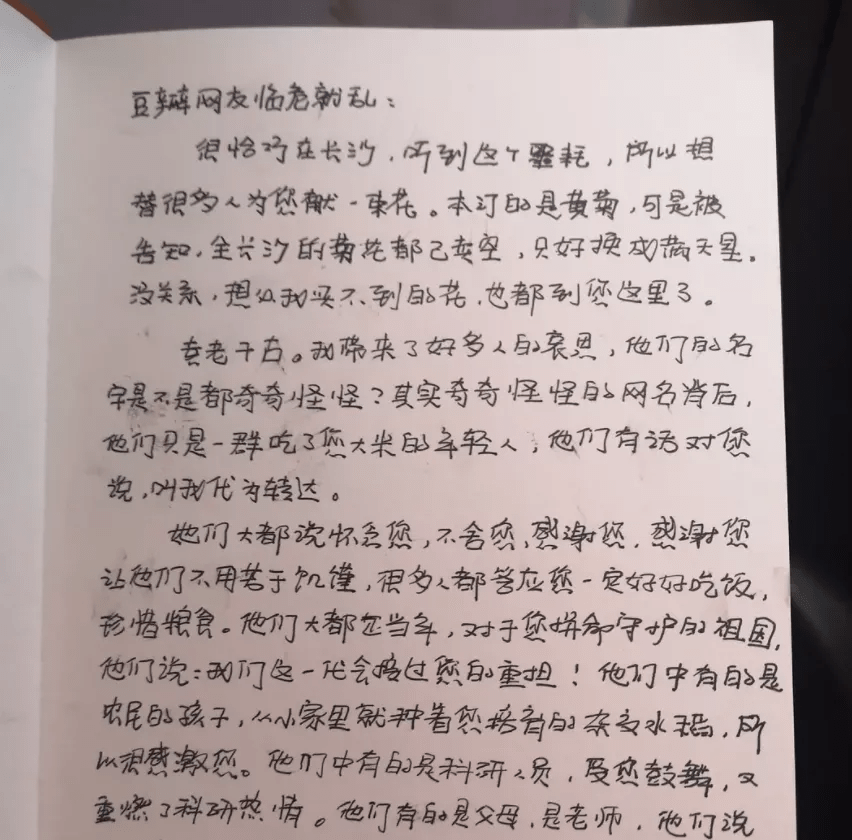 豆瓣网友临老就乱：
很恰巧在长沙，听到这个噩耗，所以想
替很多人为您献一束花。本订的是黄菊，可是被
告知，全长沙的菊花都已卖空，只好换成满天星。
没关系，想必我买不到的花，也都到您这里了。
袁老千古。我带来了好多人的哀思，他们的名
字是不是都奇奇怪怪？其实奇奇怪怪的网名背后，
他们只是一群吃了您大米的年轻人，他们有话对您
说，叫我代为转达。
她们大都说怀念您，不舍您，感谢您，感谢您
让他们不用苦于饥馑，很多人都答应您一定好好吃饭，
珍惜粮食。他们大都在当年，对于您拼命守护的祖国，
他们说：我们这一代会接过您的重担！他们中有的是
农民的孩子，从小家里就种着您培育的杂交水稻，所
以很感激您。他们中有的是科研人员，受您鼓舞，又
重燃了科研热情。他们有的是父母，是老师，他们说